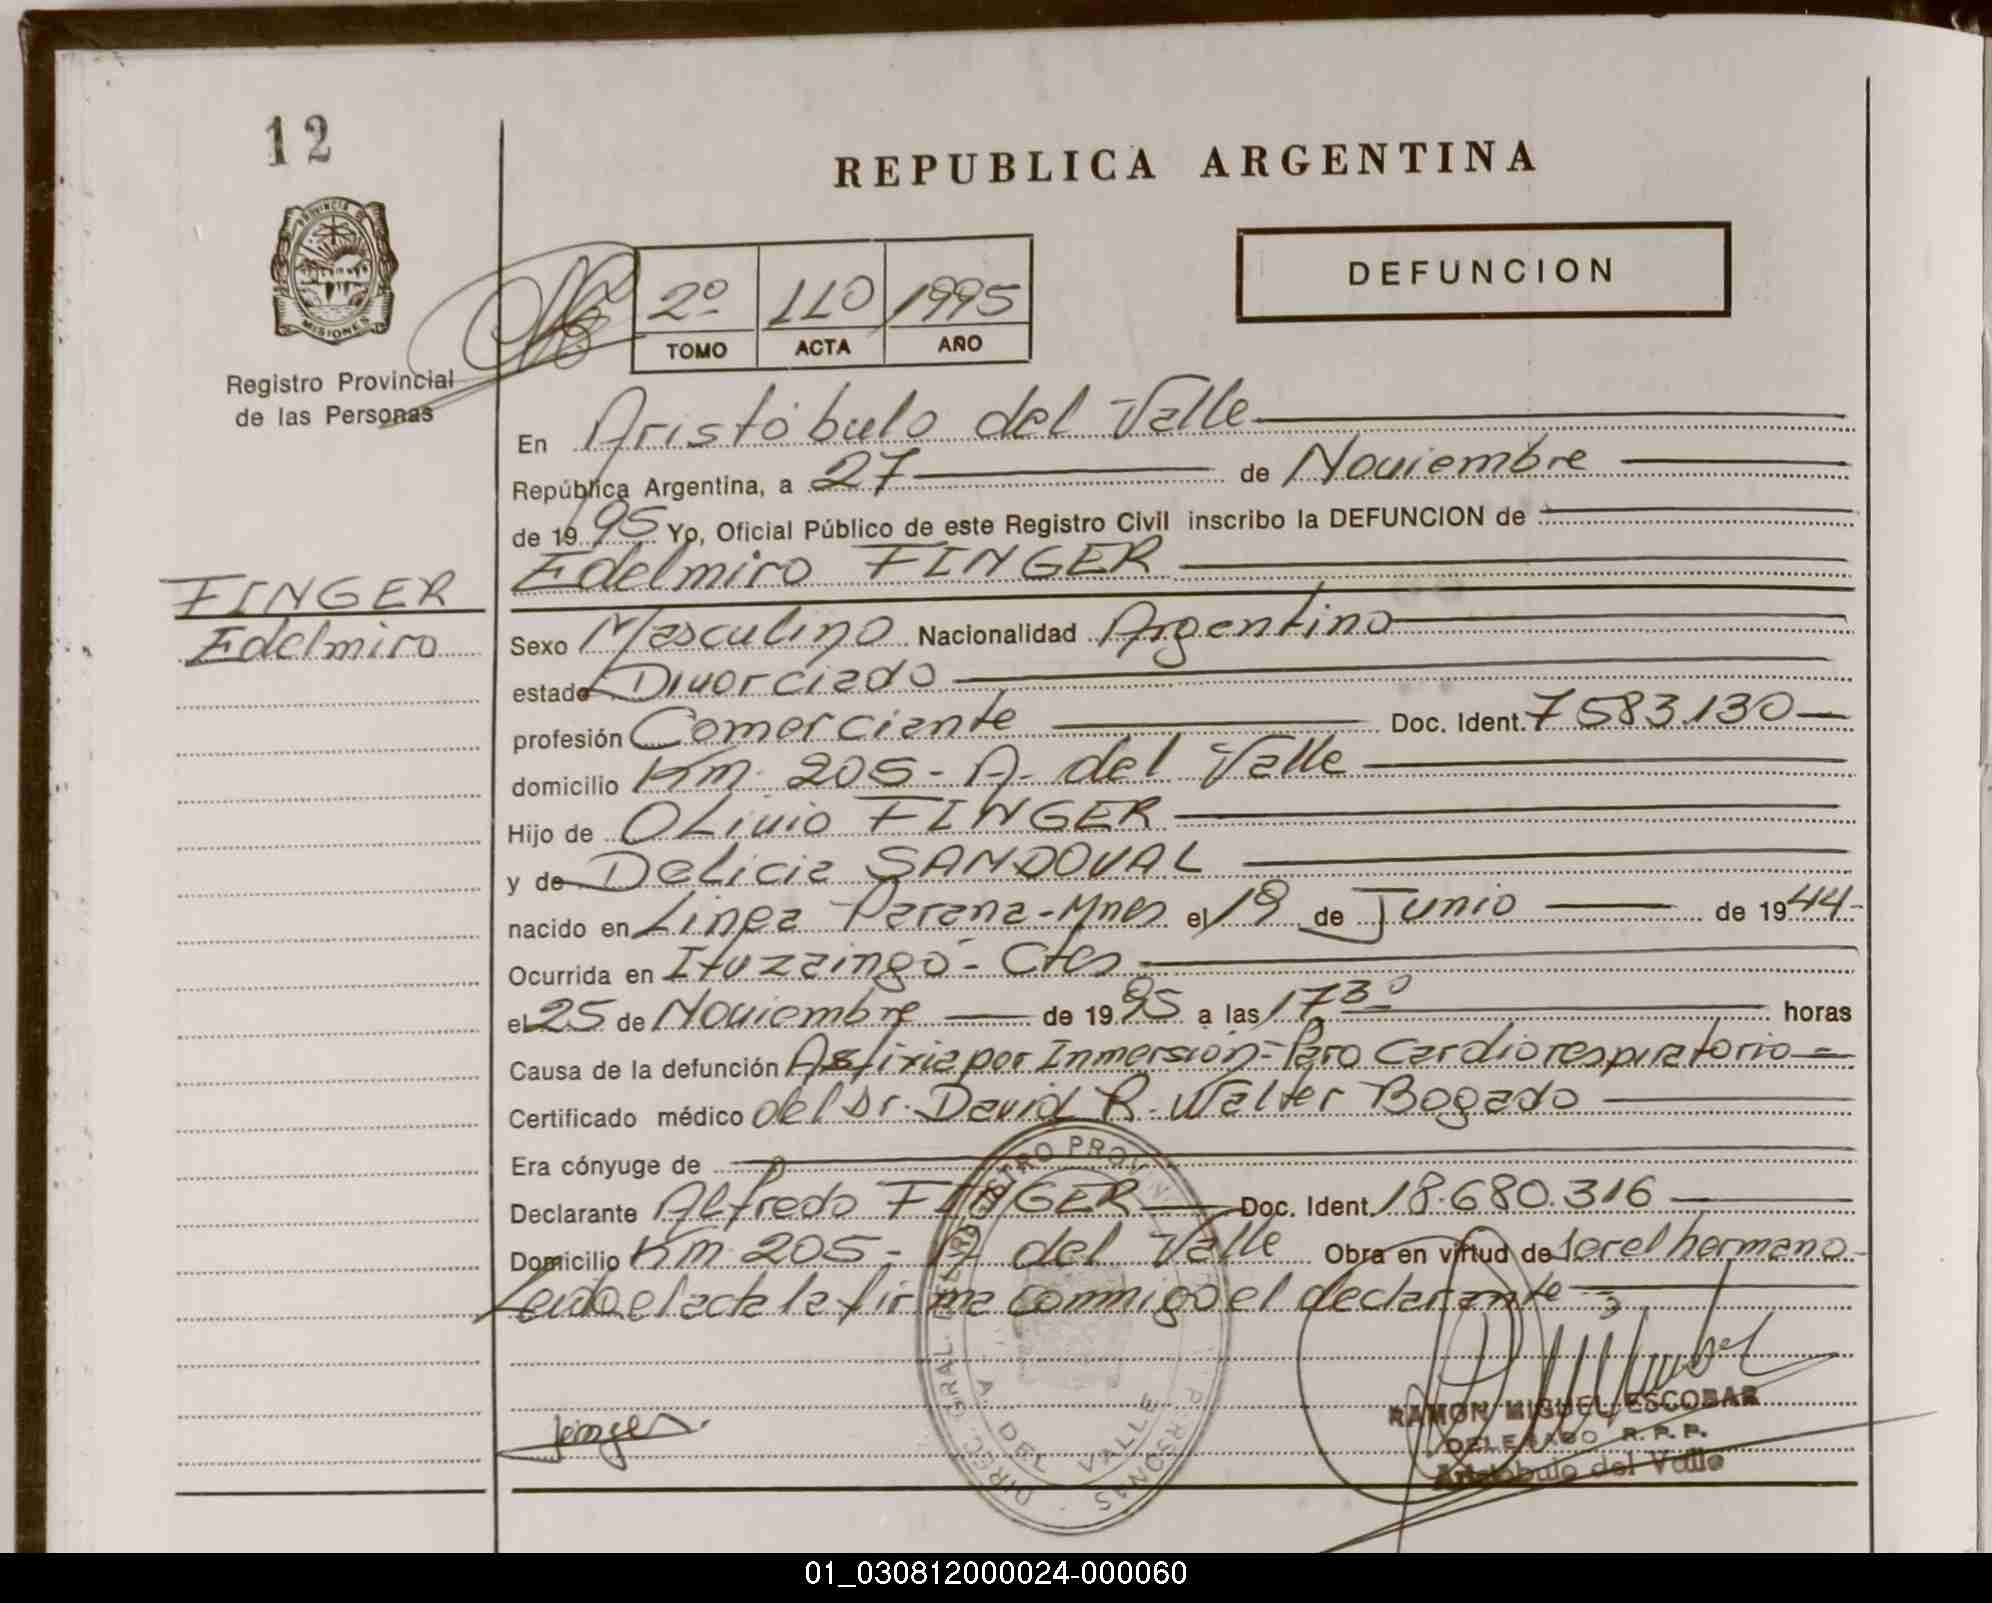 12
REPUBLICA ARGENTINA
PROVINCIA DE
MISIONES
Registro Provincial
de las Personas
2º 110 1995
TOMO ACTA AÑO
DEFUNCION
En Aristóbulo del Valle
República Argentina, a 27 de Noviembre
de 1995 Yo, Oficial Público de este Registro Civil inscribo la DEFUNCION de
Edelmiro FINGER
FINGER
Edelmiro
Sexo Masculino Nacionalidad Argentino
estado Divorciado
profesión Comerciante Doc. Ident. 7583.130
domicilio Km. 205 - A. del Valle
Hijo de OLivio FINGER
y de Delicia SANDOVAL
nacido en Linea Parana - Mnes el 19 de Junio de 1944
Ocurrida en Ituzaingó - Ctes
el 25 de Noviembre de 1995 a las 17 30 horas
Causa de la defunción Asfixia por Inmersión - Paro Cardiorespiratorio
Certificado médico del Dr. David R. Walter Bogado
Era cónyuge de
Declarante Alfredo FINGER Doc. Ident. 18.680.316
Domicilio Km. 205 - A. del Valle Obra en virtud de ser el hermano
Leido el acta la firma conmigo el declarante
DIREC. GRAL. DEL REGISTRO PROVIN. PERSONAS
A. DEL VALLE
RAMON MIGUEL ESCOBAR
DELEGADO R.P.P.
Aristóbulo del Valle
01_030812000024-000060